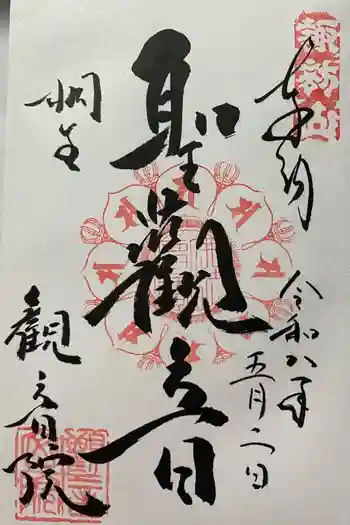 奉拝
令和八年
五月二日
聖観音
桐生
観音院